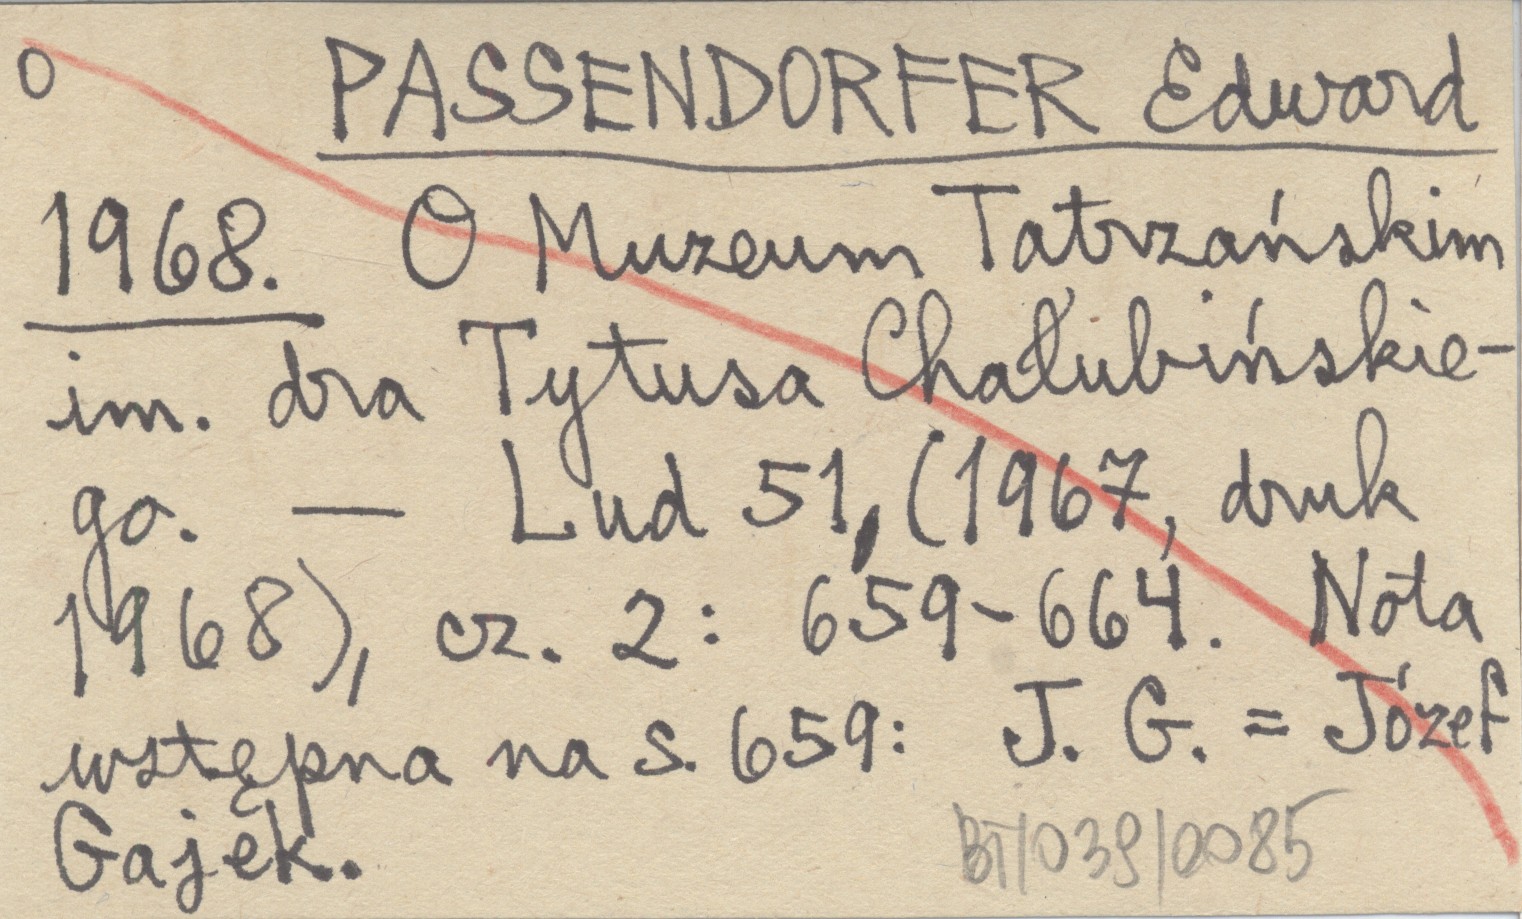 o PASSENDORFER Edward
1968. O Muzeum Tatrzańskim
im. dra Tytusa Chałubińskie-
go. — Lud 51, (1967, druk
1968), cz. 2: 659-664. Nota
wstępna na s. 659: J. G. = Józef
Gajek.
BT/039/0085